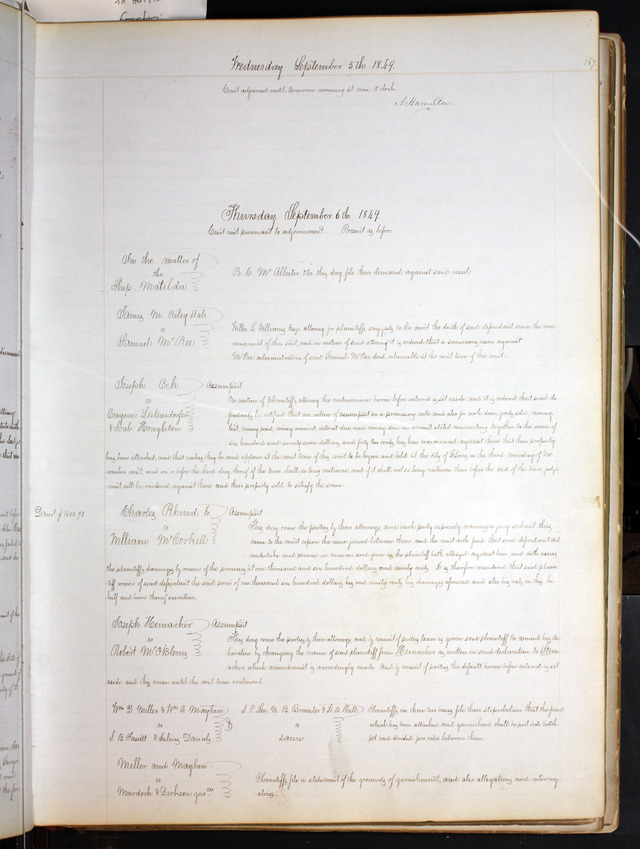 Wednesday September 5th 1849.
167
Court adjourned until tomorrow morning at nine o'clock
A. Hamilton.
Thursday September 6th 1849.
Court met pursuant to adjournment. Present as before
In the matter of
the
Ship Matilda
B. C. McAllister &c this day file their demand against said vessel
James M. Riley
vs
Samuel McRee
Willis L. Williams Esqr attorney for plaintiffs suggests to the court the death of said defendant since the com
mencement of this suit, and on motion of said attorney it is ordered that a summons issue against
administratrix of said Samuel McRee decd returnable at the next term of this court.
Joseph
vs
Eugene Leitensdorfer
& Houghton
Assumpsit
On motion of plaintiffs attorney the continuance herein before entered is set aside and it is ordered that said de
fendants be notified that an action of assumpsit on a promissory note and also for work done, goods sold, money
lent, money paid, money received, interest due and money due on account stated amounting together to the sum of
six hundred and seventy seven dollars and forty two cents, has been commenced against them that their property
has been attached, and that unless they be and appear at the next term of this court to be begun and held at the city of St Louis on the third Monday of No
vember next, and on or before the third day thereof if the term shall so long continue, and if it shall not so long continue then before the end of the term, judg
ment will be rendered against them and their property sold to satisfy the same.
Charles
vs
William McCorkell
Assumpsit
This day come the parties by their attorneys, and each party expressly waiving a jury submit this
cause to the court upon the issue joined between them, and the court doth find that said defendant did
undertake and promise in manner and form as the plaintiff hath alleged against him, and doth assess
the plaintiffs damages by reason of the premises at one thousand and six hundred dollars and ninety cents. It is therefore considered that said plain
tiff recover of said defendant the said sum of one thousand six hundred dollars and ninety cents his damages aforesaid and also his costs in this be
half and have thereof execution.
Joseph
vs
Robert McO'Blenis
Assumpsit
This day come the parties by their attorneys and by consent of parties leave is given said plaintiff to amend his de
claration by changing the name of said plaintiff from as written in said declaration to
acher which amendment is accordingly made. And by consent of parties the default herein before entered is set
aside and this cause until the next term continued.
Wm D. Miller & Wm A. Mayhew
vs
Daniels
vs
same
Plaintiffs in these two cases file their stipulation that the fund
which has been attached and garnisheed shall be put into hotch
pot and divided pro rata between them.
Miller and Mayhew
vs
Plaintiffs file a statement of the grounds of garnishment, and also allegations and interrog
atories.